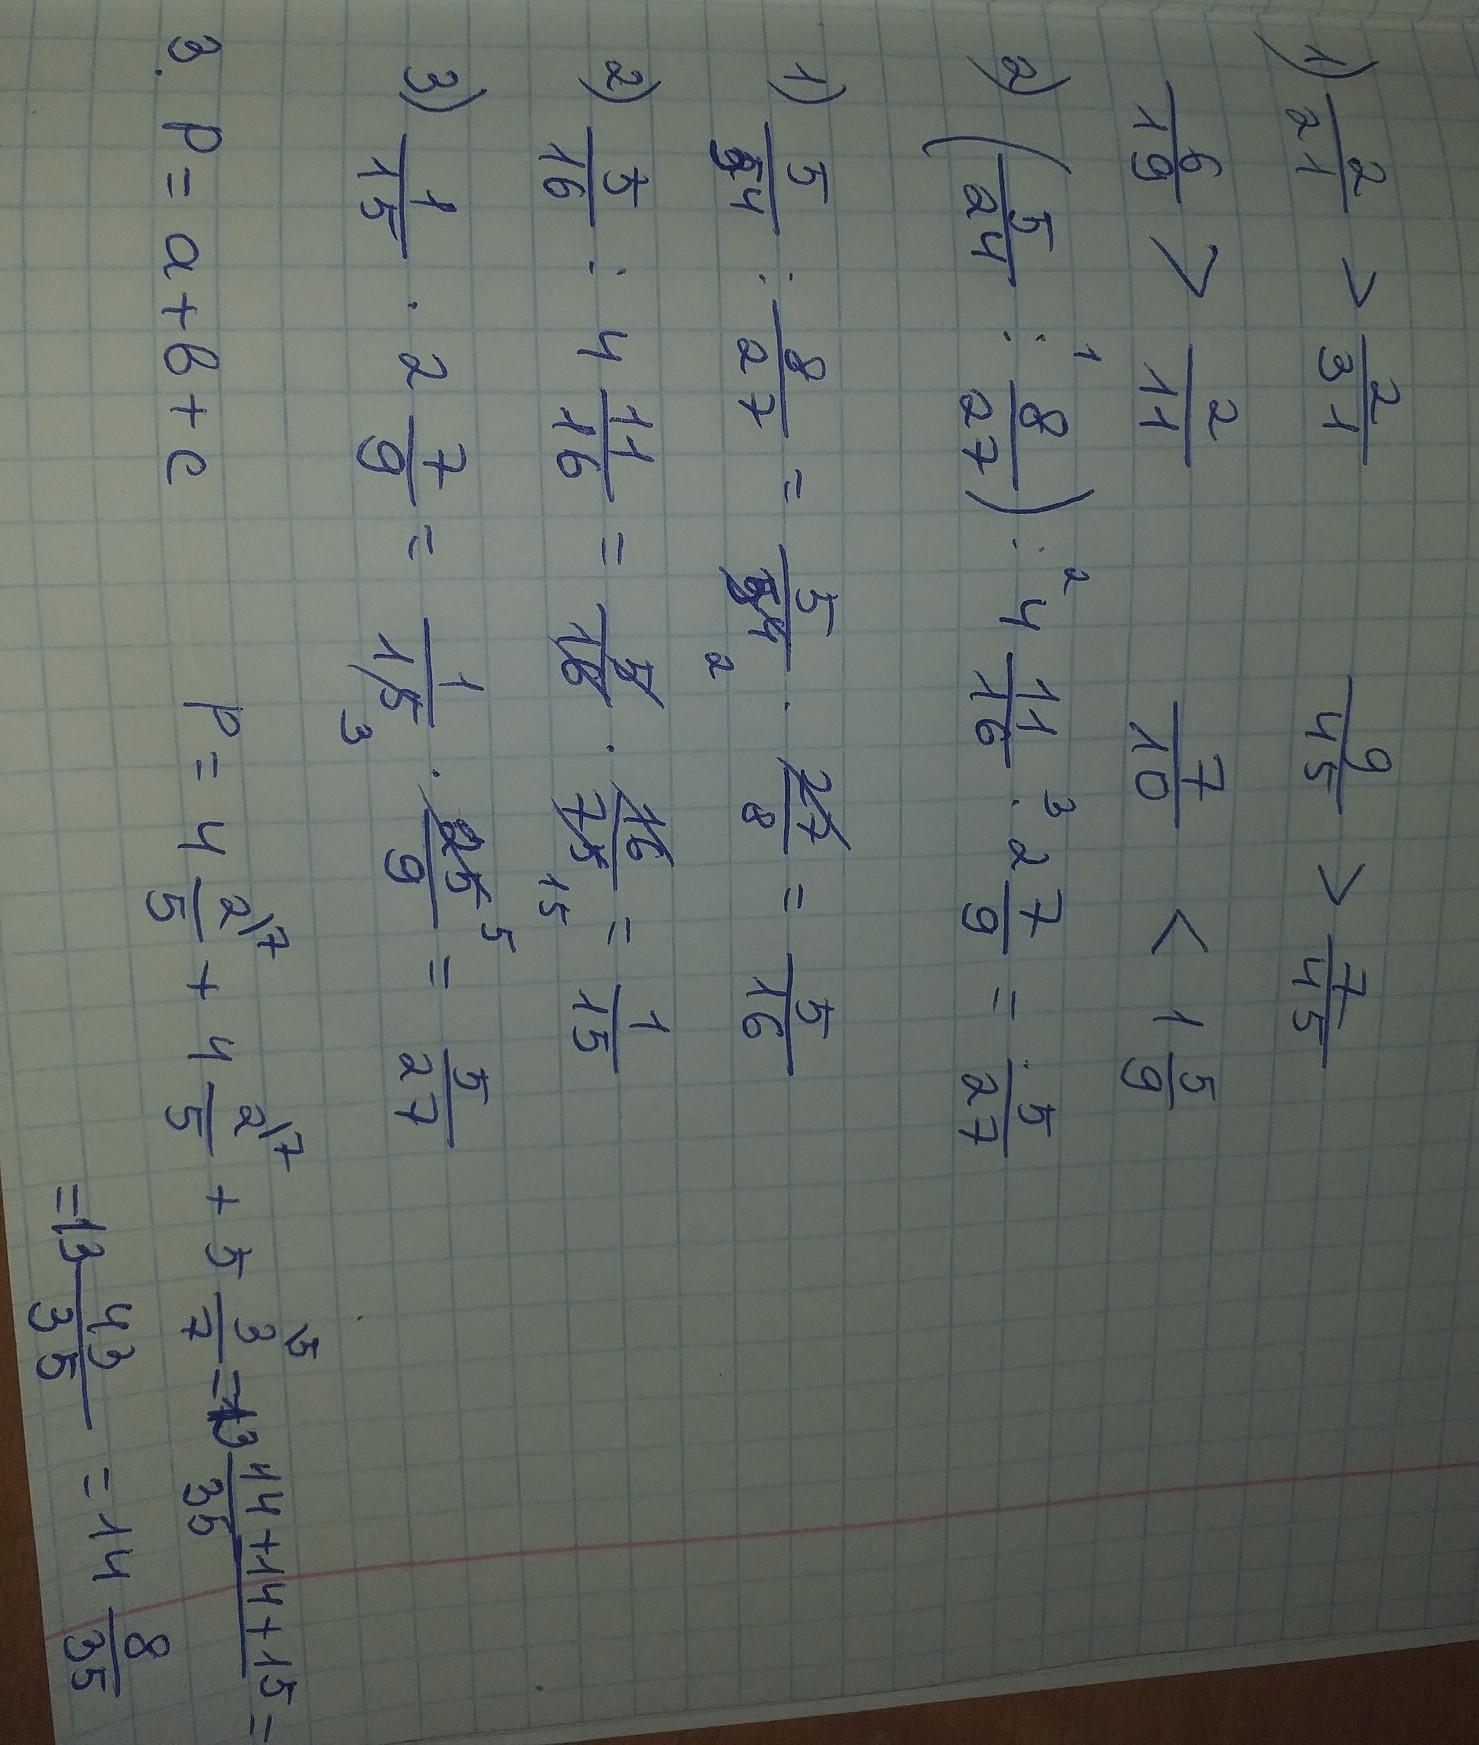 1) 2/21 > 2/31 9/45 > 7/45
6/19 > 2/11 7/10 < 1 5/9
2) (5/24 :¹ 8/27) :² 4 11/16 ·³ 2 7/9 = 5/27
1) 5/24 : 8/27 = 5/24 · 27/8 = 5/16
2
2) 5/16 : 4 11/16 = 5/16 · 16/75 = 1/15
15
3) 1/15 · 2 7/9 = 1/15 · 25/9 = 5/27
3 5
3. P = a + b + c
P = 4 2/5 \7 + 4 2/5 \7 + 5 3/7 \5 = 13 (14+14+15)/35 =
= 13 43/35 = 14 8/35